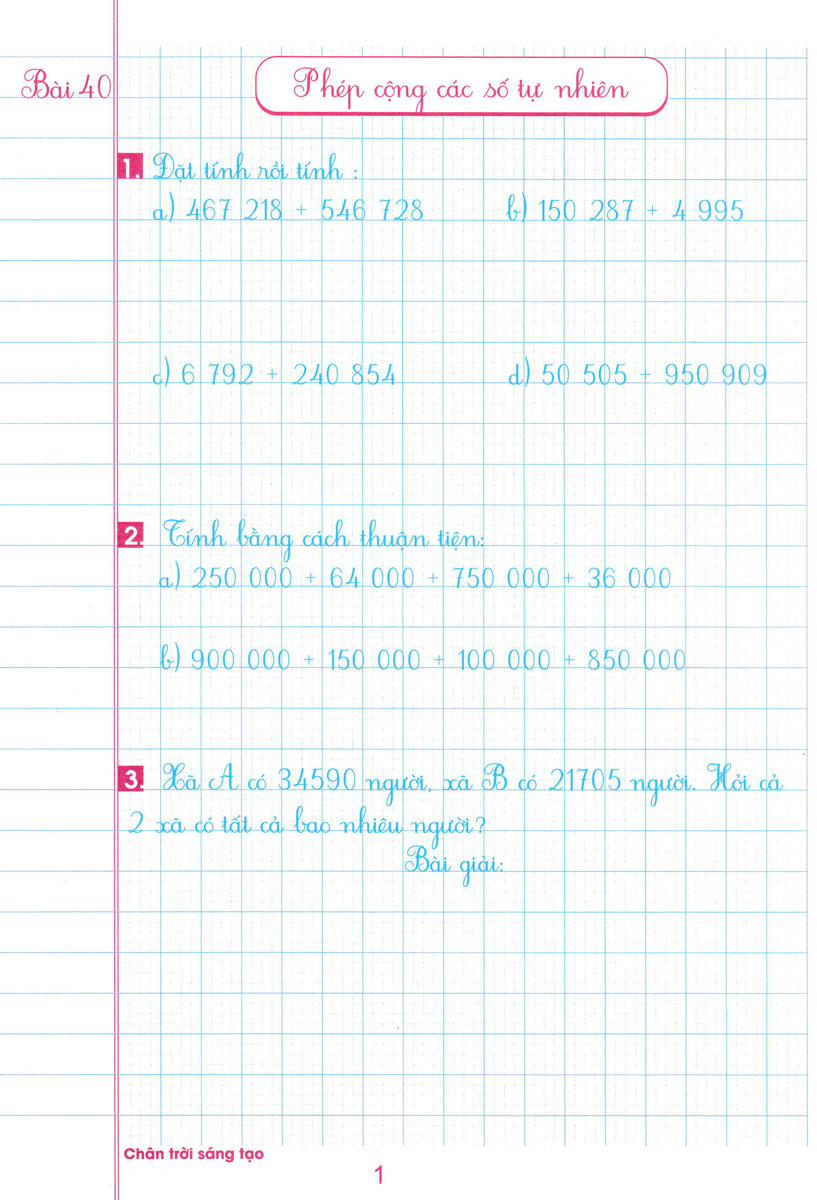 Bài 40
Phép cộng các số tự nhiên
1. Đặt tính rồi tính :
a) 467 218 + 546 728 b) 150 287 + 4 995
c) 6 792 + 240 854 d) 50 505 + 950 909
2. Tính bằng cách thuận tiện:
a) 250 000 + 64 000 + 750 000 + 36 000
b) 900 000 + 150 000 + 100 000 + 850 000
3. Xã A có 34590 người, xã B có 21705 người. Hỏi cả
2 xã có tất cả bao nhiêu người?
Bài giải:
Chân trời sáng tạo
1